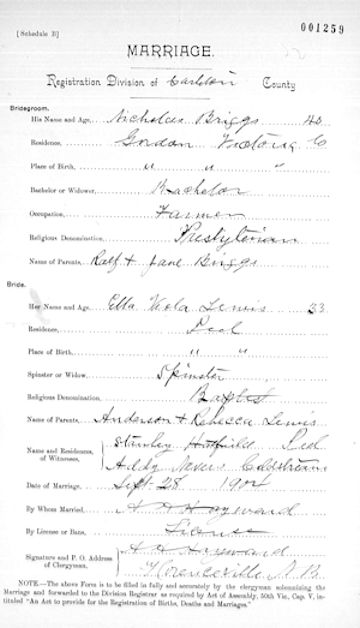 001259
[Schedule B]
MARRIAGE.
Registration Division of Carleton County
Bridegroom.
His Name and Age, Nicholas Briggs 40
Residence, Gordon Victoria Co
Place of Birth, " " "
Bachelor or Widower, Bachelor
Occupation, Farmer
Religious Denomination, Presbyterian
Name of Parents, Ralf & Jane Briggs
Bride.
Her Name and Age, Etta Viola Lewis 33
Residence, Peel
Place of Birth, " "
Spinster or Widow, Spinster
Religious Denomination, Baptist
Name of Parents, Anderson & Rebecca Lewis
Name and Residence, of Witnesses, Stanley Hatfield Peel
Addy Nevers Coldstream
Date of Marriage, Sept. 28 1904
By Whom Married, A A Hayward
By License or Bans, License
Signature and P. O. Address of Clergyman, A A Hayward
Florenceville N.B.
NOTE.—The above Form is to be filled in fully and accurately by the clergyman solemnizing the
Marriage and forwarded to the Division Registrar as required by Act of Assembly, 50th Vic, Cap. V, in-
tituled "An Act to provide for the Registration of Births, Deaths and Marriages."